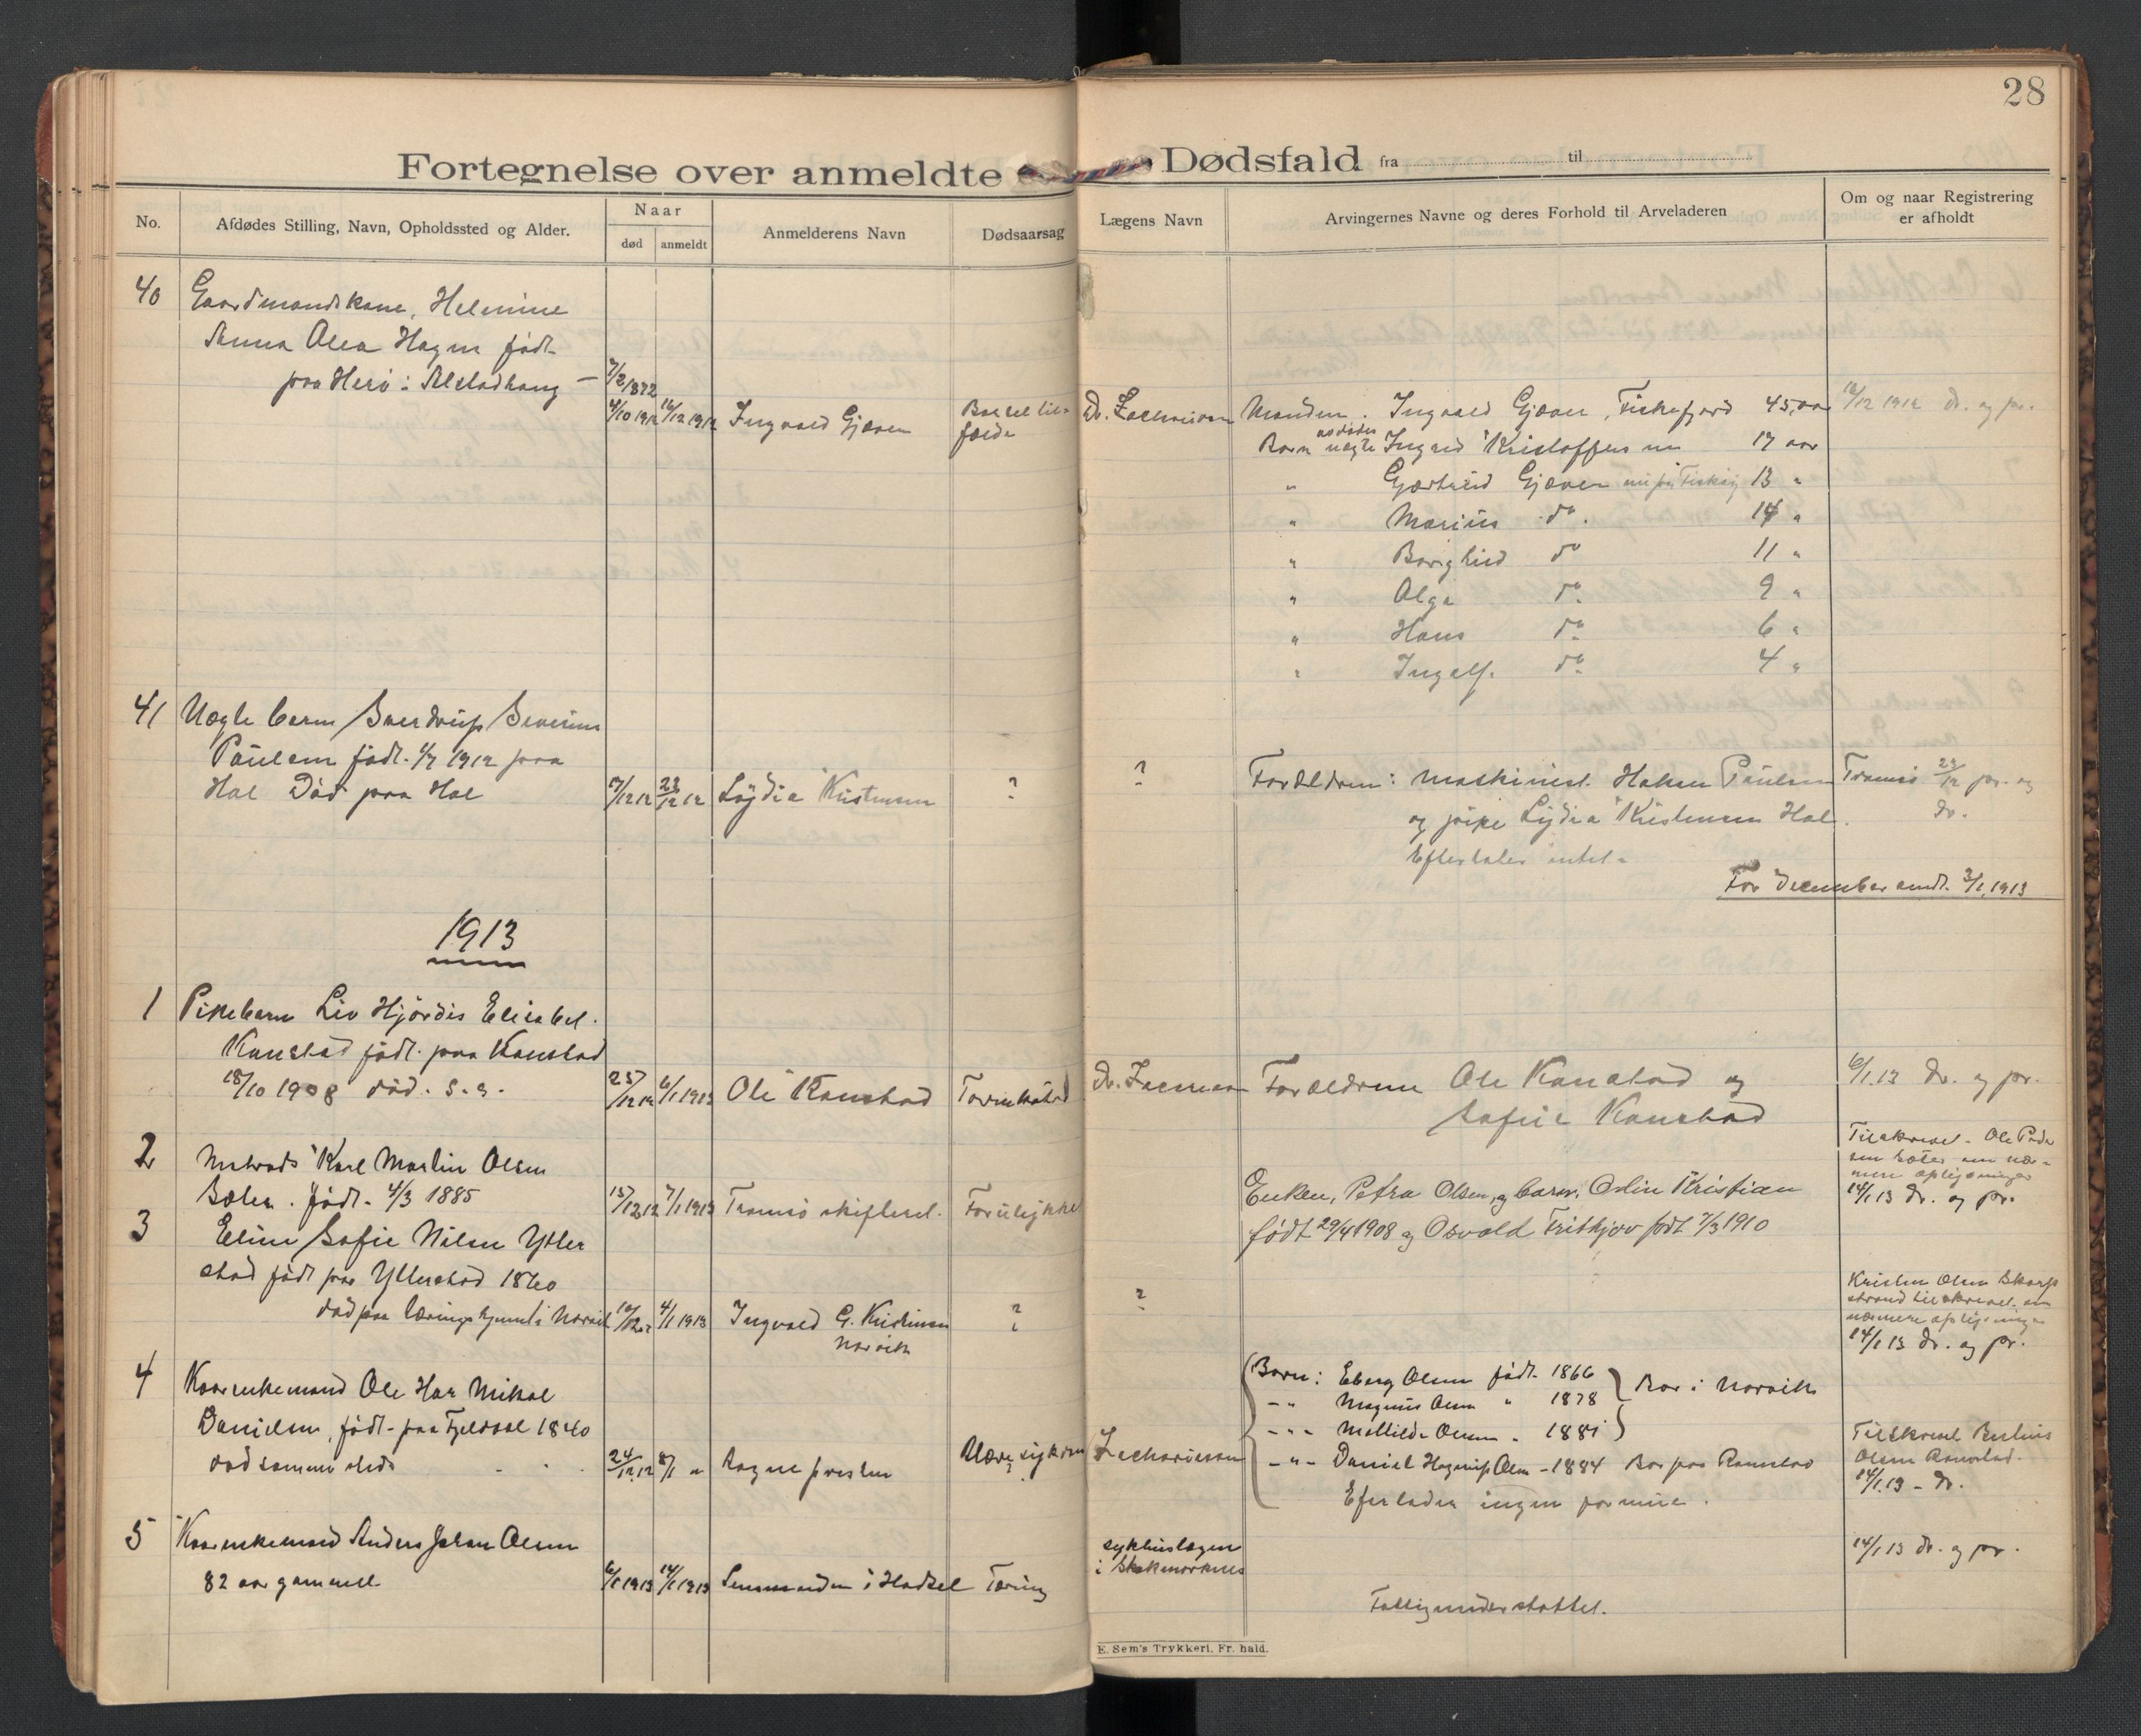 28
Fortegnelse over anmeldte Dødsfald fra til
No.
Afdødes Stilling, Navn, Opholdssted og Alder.
Naar
død
anmeldt
Anmelderens Navn
Dødsaarsag
Lægens Navn
Arvingernes Navne og deres Forhold til Arveladeren
Om og naar Registrering
er afholdt
40
Gaardmandskone, Helmine
Anna Olea Hagen født
paa Herö i Alstadhaug —
7/2 1872
4/10 1912
16/12 1912
Ingvald Gjæver
Barsel til-
fælde
Dr. Zachariassen
Manden. Ingvald Gjæver, Fiskefjord 45 aar
Barn uægte Ingrid Kristoffersen 17 aar
" Gjertrud Gjæver 13 "
" Marius do. 14 "
" Borghild do 11 "
" Olga do. 9 "
" Hans do 6 "
" Ingolf. do 4 "
16/12 1912 dr. og pr.
41
Uægte barn Sverdrup Severin
Paulsen født 4/7 1912 paa
Hol Död paa Hol
17/12 12
23/12 12
Lydia Kristensen
?
?
Forældren: Maskinist. Hakon Paulsen Tromsö
og pike Lydia Kristensen Hol.
Efterlater intet.
23/12 pr. og
dr.
For December sendt. 3/1. 1913
1913
1
Pikebarn Liv Hjördis Elisabet.
Kanstad født paa Kanstad
18/10 1908 död. s. s.
25/12 12
6/1 1913
Ole Kanstad
Dr.
Forældrene Ole Kanstad og
Sofie Kanstad
6/1.13 dr. og pr.
2
Karl Martin Olsen
Böten. født. 4/3 1885
15/12 12
7/1 1913
Tromsö skifteret.
Forulykket
Enken, Petra Olsen, og barn: Odin Kristian
født 29/4 1908 og Osvald Frithjov født 7/3 1910
Tilskrevet. Ole Peder
sen Böten om nær-
mere oplysninger
14/1.13 dr. og pr.
3
Eline Sofie Nilsen Ytter
stad född paa Ytterstad 1860
död paa i Narvik
4/1 1913
Ingvald G. Kristensen
Narvik
?
?
Kristen Olsen Skarp
strand tilskrevet om
nærmere oplysninger
14/1 13 dr. og pr.
4
Kaarenkemand Ole Har Mikal
Danielsen, født. paa Fjeldsal 1840
död samme steds
24/12.12
8/1 "
Sogne presten
Zachariassen
Børn: Eberg Olsen født. 1866
-"- Magnus Olsen " 1878
-"- Mathilde Olsen " 1881
Bor i Narvik
-"- Daniel Hagerup Olsen - 1884 Bor paa Ramstad
Efterlader ingen formue.
Tilskrevet
Olsen Ramstad.
14/1.13 - dr.
5
Kaarenkemand Anders Johan Olsen
82 aar gammel
6/1 1913
14/1 1913
Lensmanden i Hadsel
Tæring
sykhuslægen
i Stokmarknes
Fattigunderstöttet.
14/1 13 dr. og pr.
E. Sem's Trykkeri. Fr. hald.